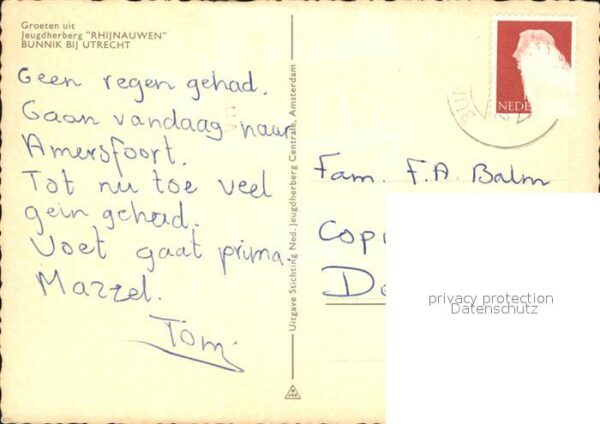 Groeten uit
Jeugdherberg "RHIJNAUWEN"
BUNNIK BIJ UTRECHT
Geen regen gehad.
Gaan vandaag naar
Amersfoort.
Tot nu toe veel
gein gehad.
Voet gaat prima.
Mazzel.
Tom.
Uitgave Stichting Ned. Jeugdherberg Centrale, Amsterdam
NEDE
BU
Fam. F.A. Balm
Cop
De
privacy protection
Datenschutz